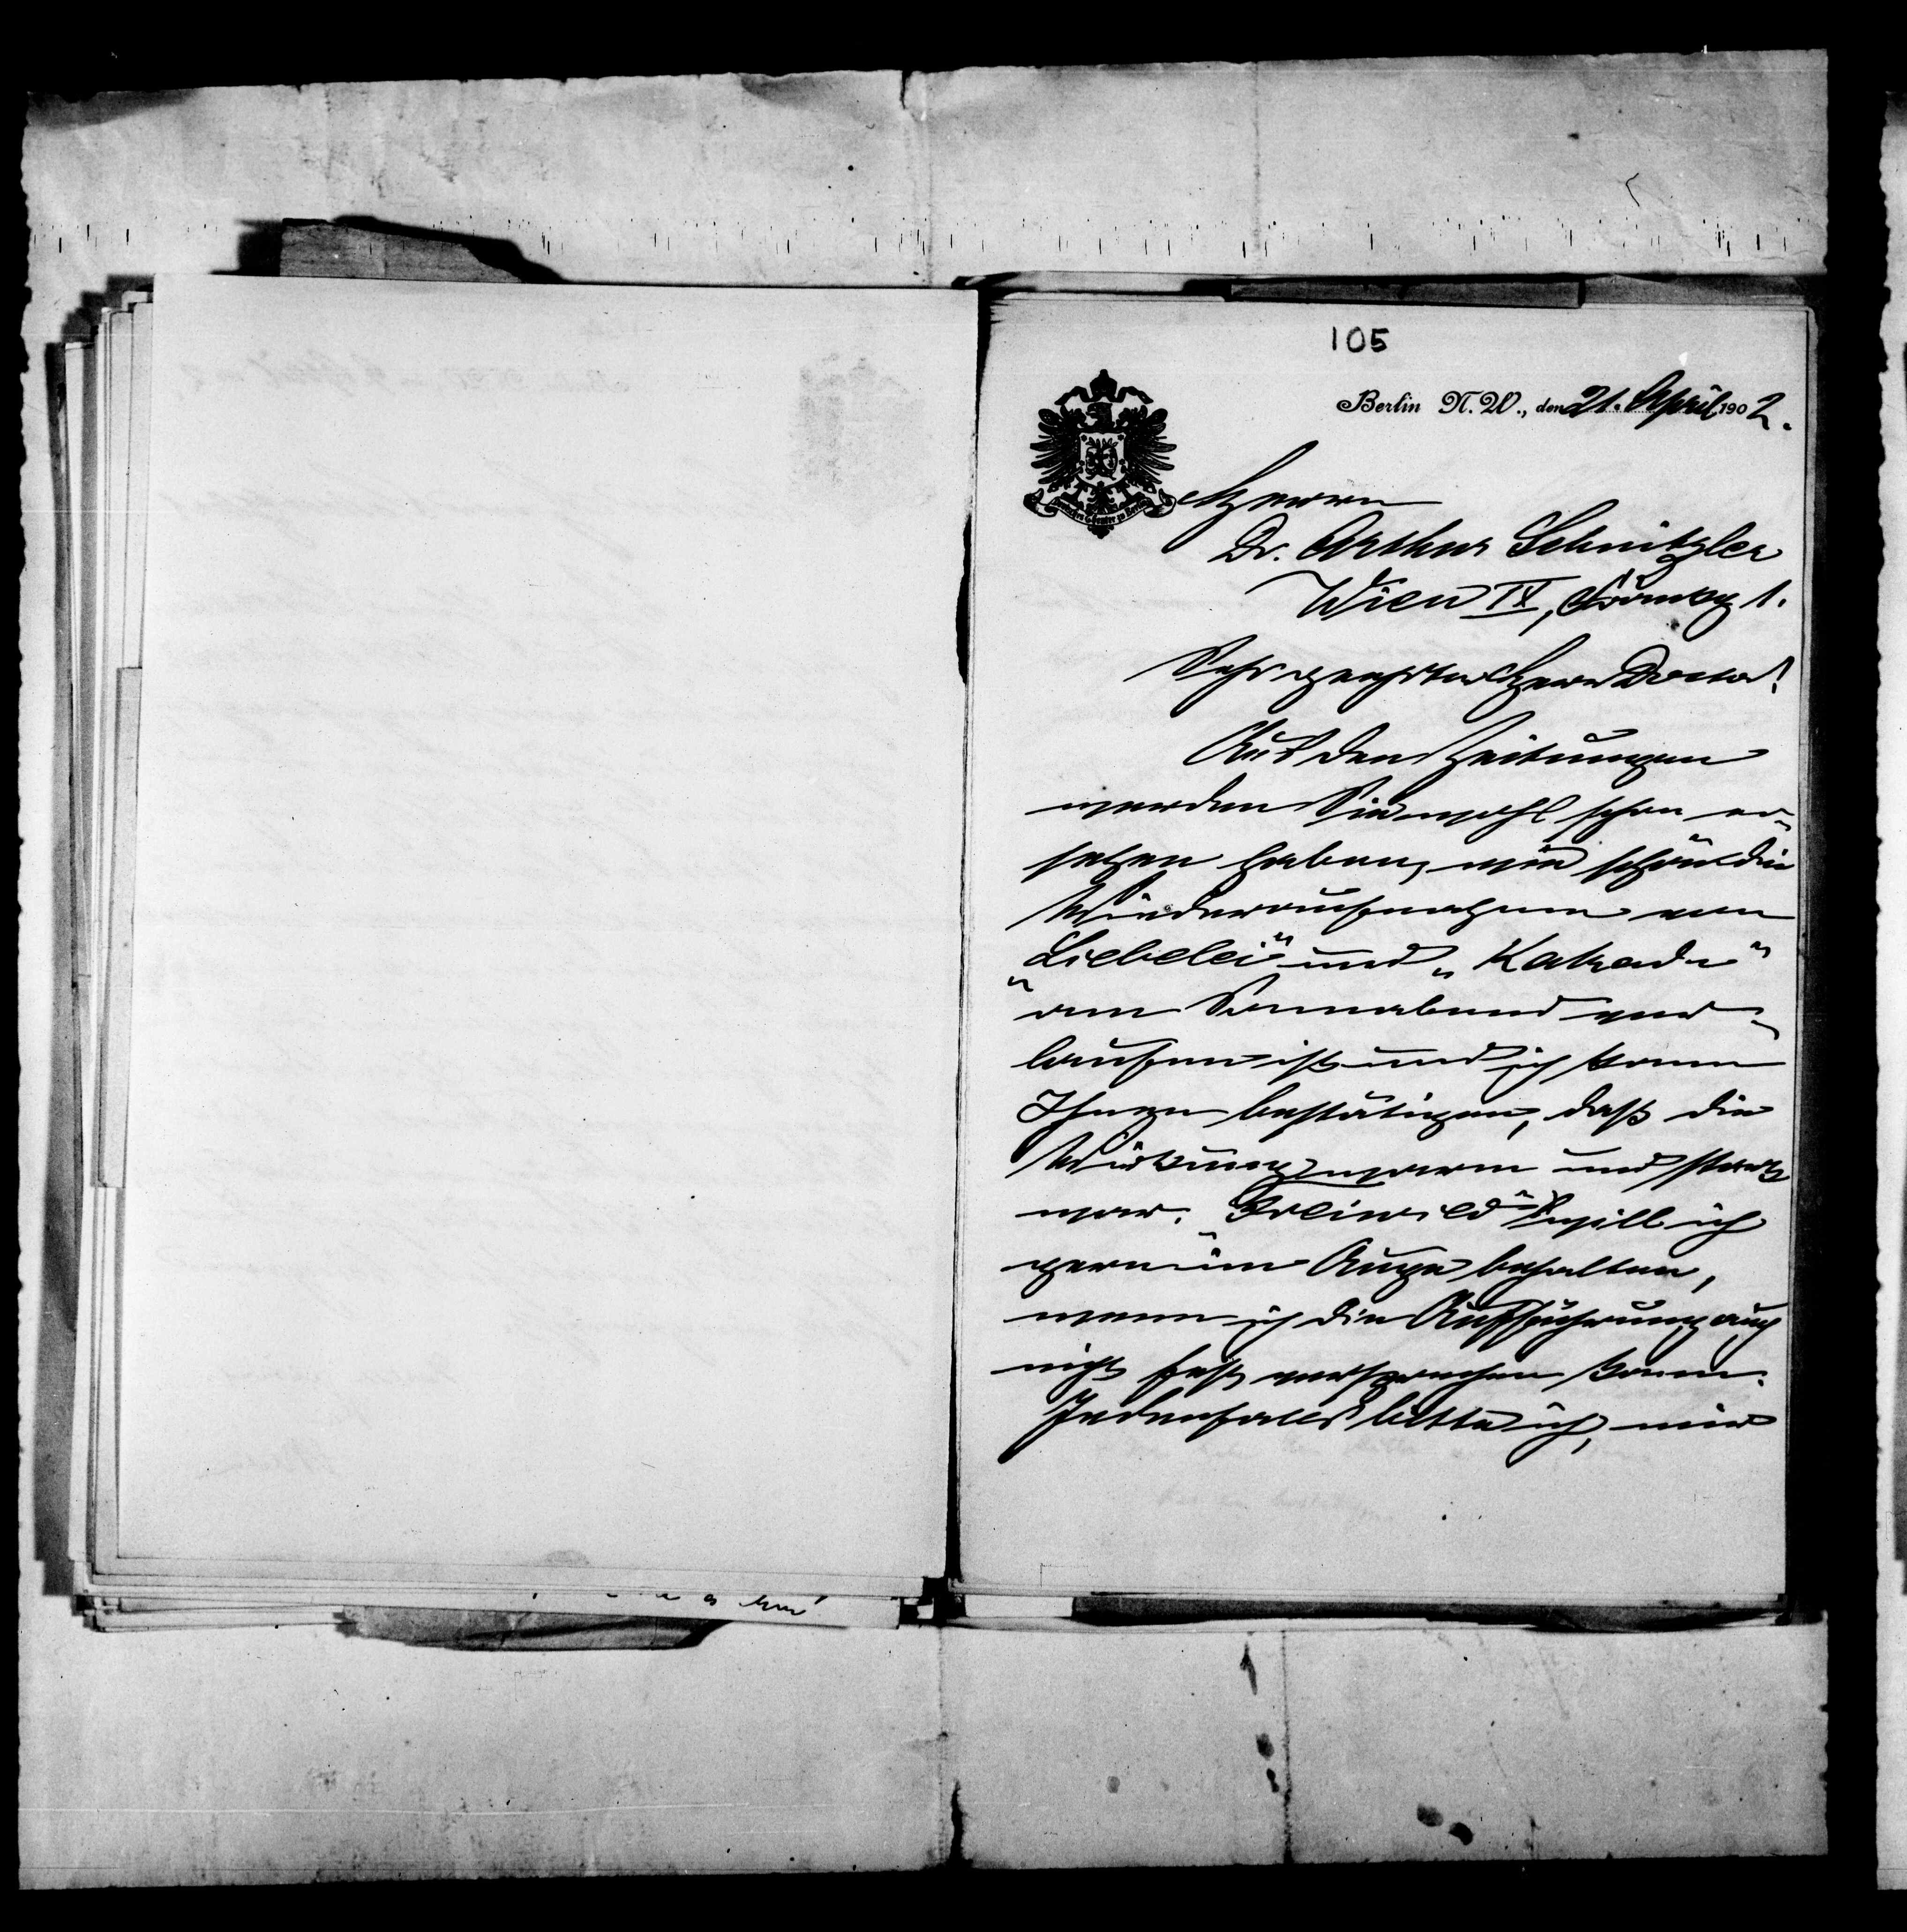 105
Berlin N.W., den 21. April 1902.
Deutsches Theater zu Berlin
Herrn
Dr. Arthur Schnitzler
Wien IX,
Sehr geehrter Herr Doctor!
Aus den Zeitungen
werden Sie wohl schon er-
sehen haben, wie schön die
Wiederaufnahme von
„Liebelei“ und „Kakadu“
am Sonnabend ver-
laufen ist und ich kann
Ihnen bestätigen, daß die
Wirkung warm und stark
war. „Freiwild“ will ich
gern im Auge behalten,
wenn ich die Aufführung auch
nicht fest versprechen kann.
Jedenfalls bitte ich, mir